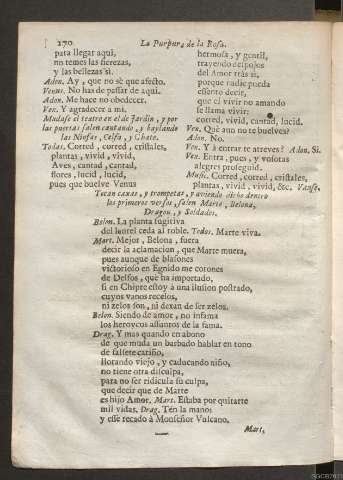 170 La Purpura de la Rosa.
para llegar aqui,
no temes las fierezas,
y las bellezas si.
Adon. Ay, que no sè que afecto.
Venus. No has de passar de aqui.
Adon. Me hace no obedecer.
Ven. Y agradecer a mi.
Mudase el teatro en el de Jardin, y por
las puertas salen cantando, y baylando
las Ninfas, Celfa, y Chato.
Todas. Corred, corred, cristales,
plantas, vivid, vivid,
Aves, cantad, cantad,
flores, lucid, lucid,
pues que buelve Venus
hermosa, y gentil,
trayendo despojos
del Amor tràs sì,
porque nadie pueda
essento decir,
que el vivir no amando
se llama vivir:
corred, vivid, cantad, lucid.
Ven. Què aun no te buelves?
Adon. No.
Ven. Y à entrar te atreves? Adon. Si.
Ven. Entra, pues, y vosotas
alegres proseguid.
Music. Corred, corred, cristales,
plantas, vivid, vivid, &c. Vanse.
Tocan caxas, y trompetas, y aviendo dicho dentro
los primeros versos, salen Marte, Belona,
Dragon, y Soldados.
Belon. La planta fugitiva
del laurel ceda al roble. Todos. Marte viva.
Mart. Mejor, Belona, fuera
decir la aclamacion, que Marte muera,
pues aunque de blasones
victorioso en Egnido me corones
de Delfos, què ha importado,
si en Chipre estoy à una ilusion postrado,
cuyos vanos recelos,
ni zelos son, ni dexan de ser zelos.
Belon. Siendo de amor, no infama
los heroycos assuntos de la fama.
Drag. Y mas quando en abono
de que muda un barbado hablar en tono
de falsete cariño,
llorando viejo, y caducando niño,
no tiene otra disculpa,
para no ser ridicula su culpa,
que decir que de Marte
es hijo Amor. Mart. Estaba por quitarte
mil vidas. Drag. Ten la mano;
y esse recado à Monseñor Vulcano.
Mart.